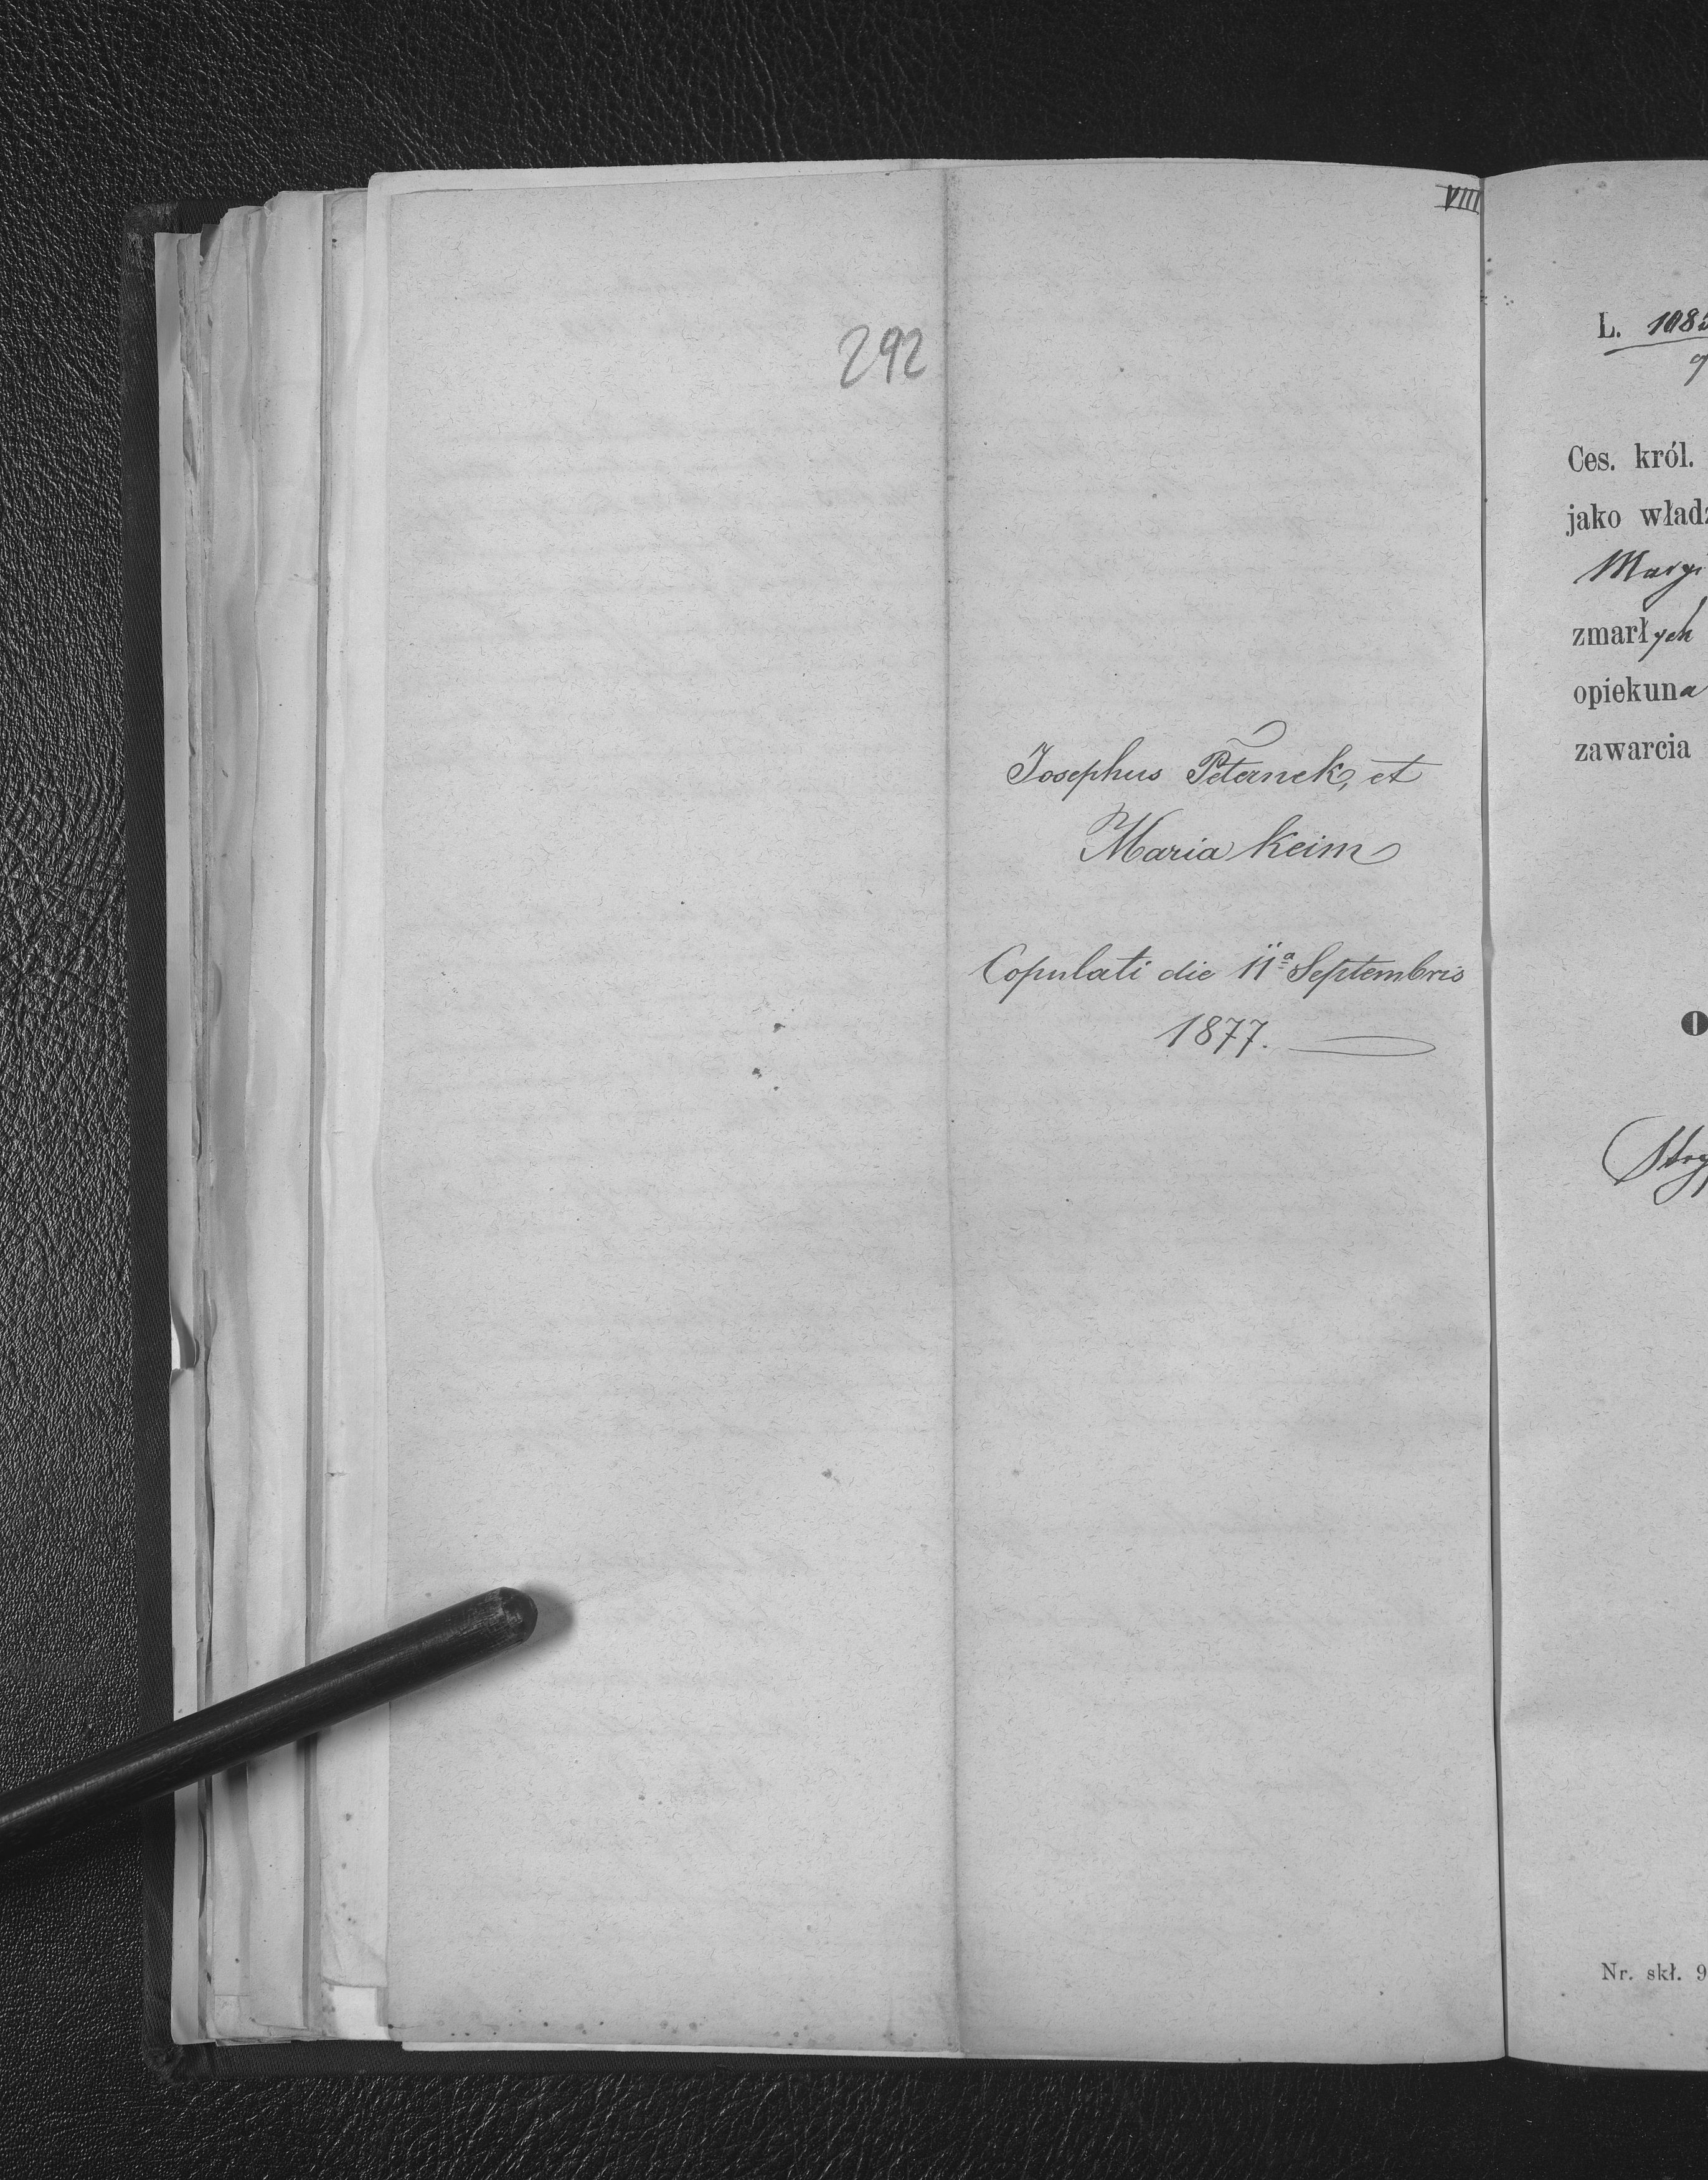 VIII
292
Josephus Peternek, et
Maria Keim
Copulati die 11ª Septembris
1877.
L. 108
Ces. król.
jako władz
Mary
zmarłych
opiekuna
zawarcia
O
Stry
Nr. skł. 9